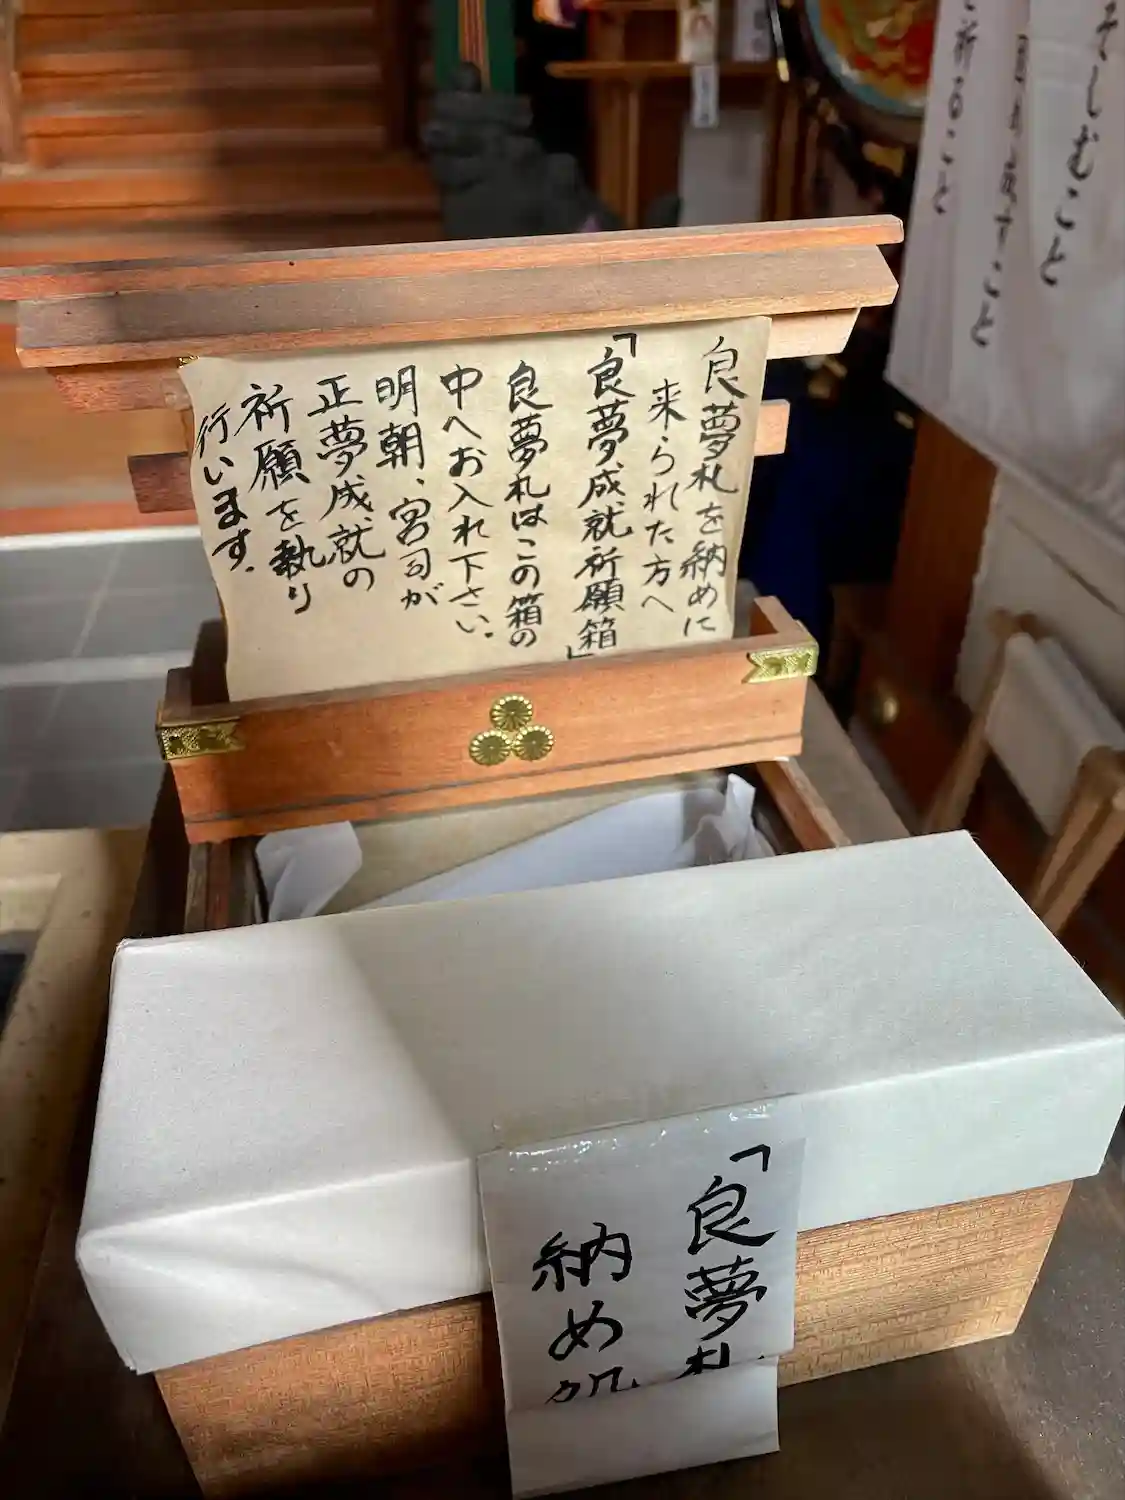 良夢札を納めに
来られた方へ
「良夢成就祈願箱」
良夢札はこの箱の
中へお入れ下さい。
明朝、宮司が
正夢成就の
祈願を執り
行います。
「良夢札
納め処
そしむこと
成すこと
祈ること